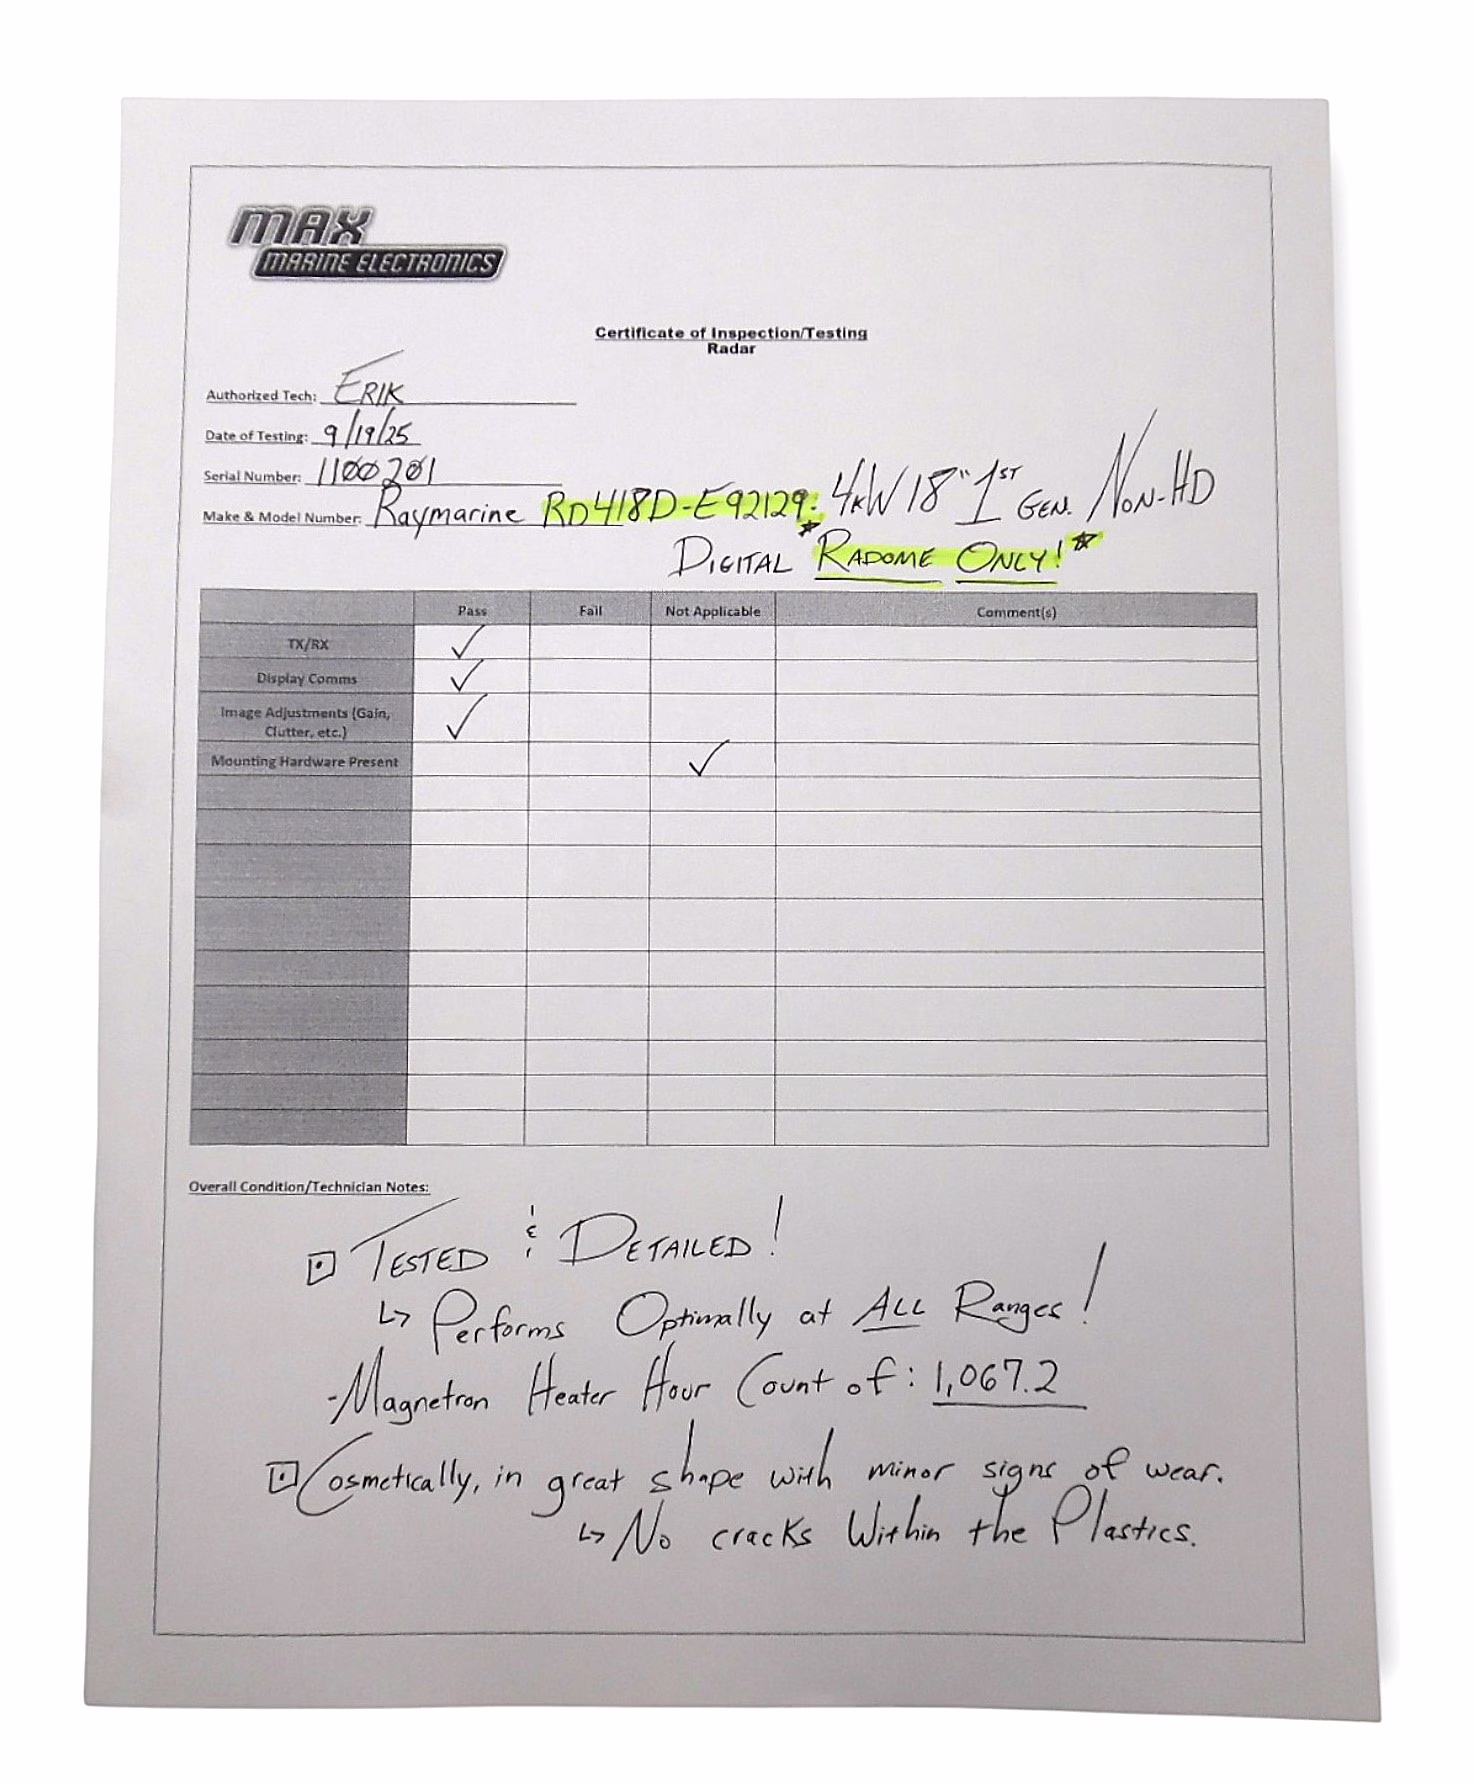 MAX
MARINE ELECTRONICS
Certificate of Inspection/Testing
Radar
Authorized Tech: ERIK
Date of Testing: 9/19/25
Serial Number: 1100201
Make & Model Number: Raymarine RD418D-E92129: 4kW 18" 1ST GEN. NON-HD
DIGITAL *RADOME ONLY!*
Pass Fail Not Applicable Comment(s)
TX/RX ✓
Display Comms ✓
Image Adjustments (Gain,
Clutter, etc.) ✓
Mounting Hardware Present ✓
Overall Condition/Technician Notes:
⊡ TESTED & DETAILED!
↳ Performs Optimally at ALL Ranges!
-Magnetron Heater Hour Count of: 1,067.2
⊡ Cosmetically, in great shape with minor signs of wear.
↳ No cracks Within the Plastics.